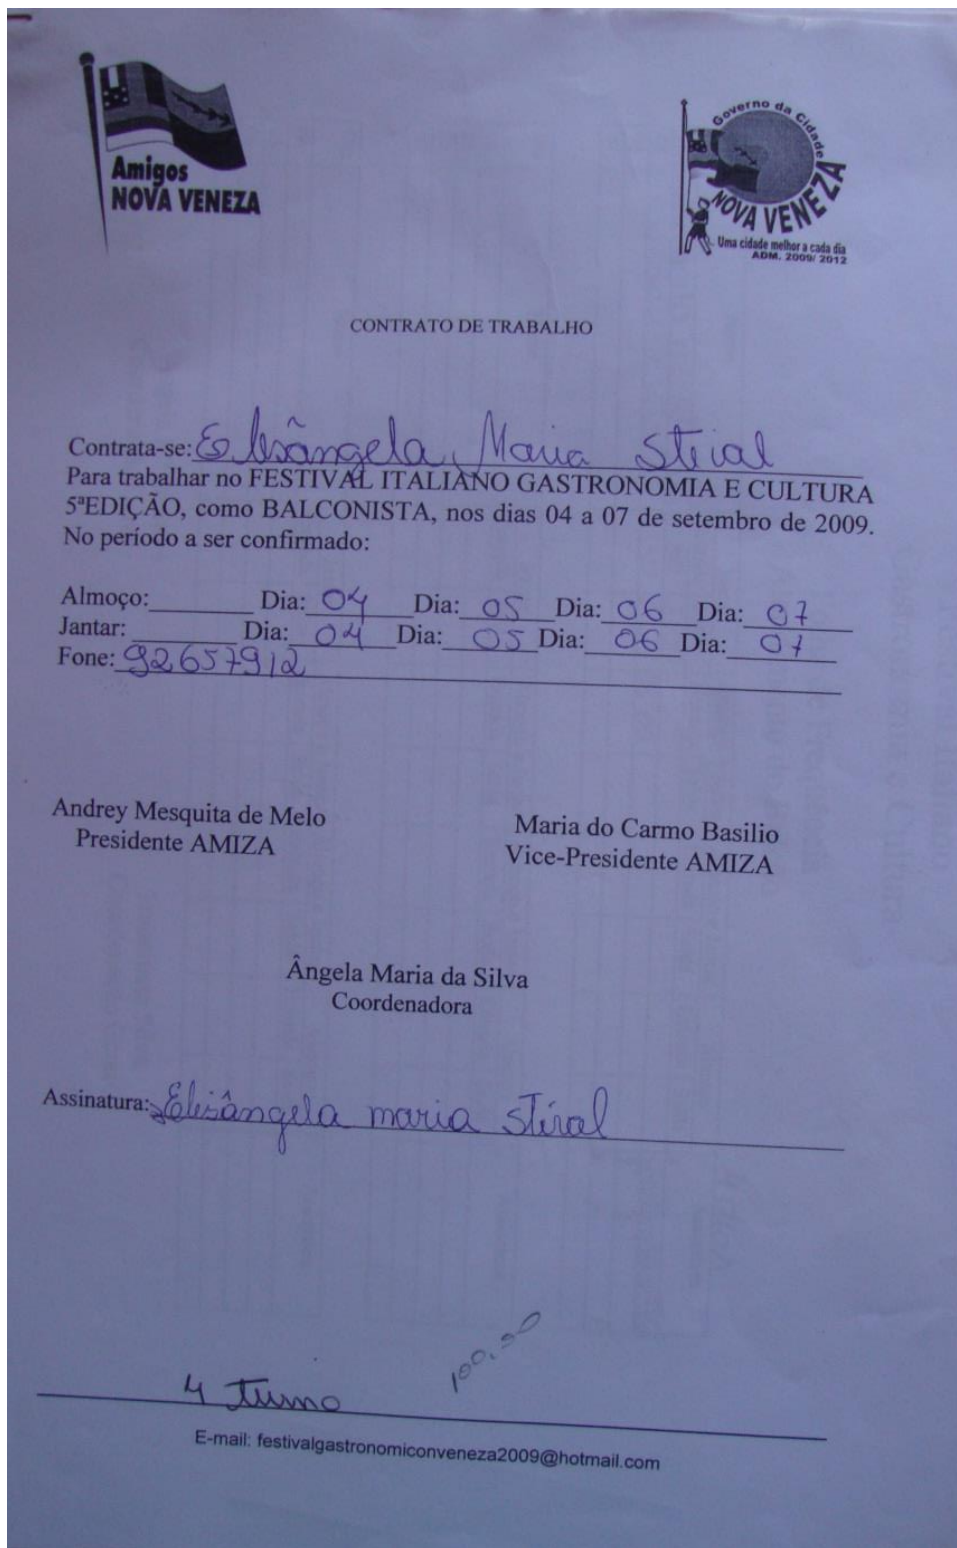 Amigos
NOVA VENEZA
Governo da Cidade
NOVA VENEZA
Uma cidade melhor a cada dia
ADM. 2009/ 2012
CONTRATO DE TRABALHO
Contrata-se: Elisângela Maria Steial
Para trabalhar no FESTIVAL ITALIANO GASTRONOMIA E CULTURA
5ªEDIÇÃO, como BALCONISTA, nos dias 04 a 07 de setembro de 2009.
No período a ser confirmado:
Almoço:________ Dia: 04 Dia: 05 Dia: 06 Dia: 07
Jantar: ________ Dia: 04 Dia: 05 Dia: 06 Dia: 07
Fone: 92657912
Andrey Mesquita de Melo
Presidente AMIZA
Maria do Carmo Basilio
Vice-Presidente AMIZA
Ângela Maria da Silva
Coordenadora
Assinatura: Elisângela maria Stiral
100,00
4 Turno
E-mail: festivalgastronomiconveneza2009@hotmail.com